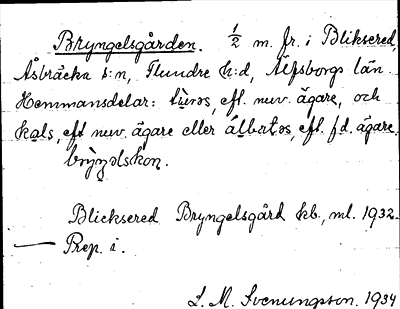 Bryngelsgården. 1/2 m. fr. i Bliksered,
Åsbräcka s:n, Flundre h:d, Älfsborgs län.
Hemmansdelar: tùres, eft. nuv. ägare, och
kals, eft nuv. ägare eller álbertəs, eft. f.d. ägare,
Blicksered Bryngelsgård kb, ml. 1932.
— Prep. i.
S. M. Svenungsson. 1934